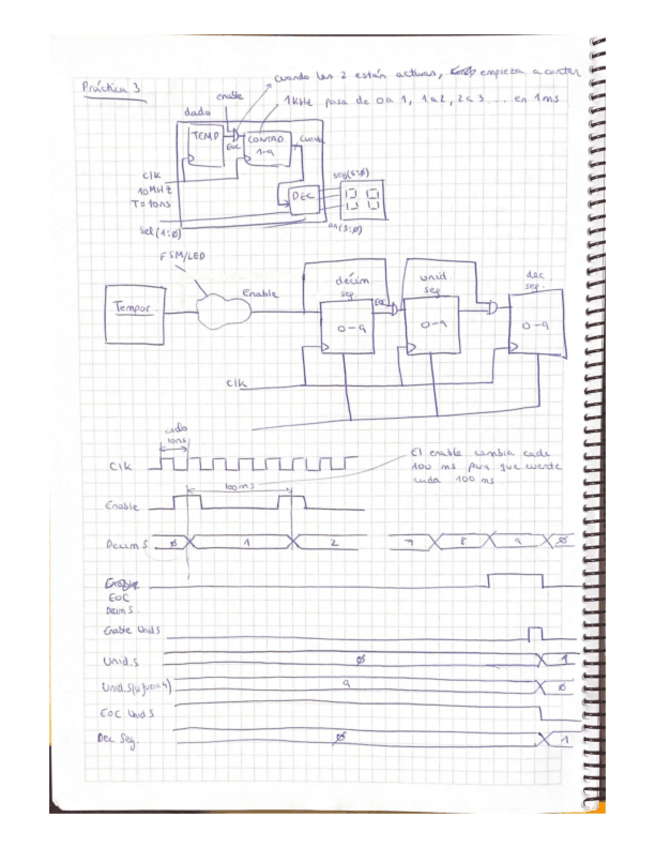 Práctica 3
cuando las 2 están activas, empieza a contar
enable
1kHz pasa de 0 a 1, 1 a 2, 2 a 3... en 1ms
dada
TEMP
EOC
CONTAD
1-9
Cuenta
clk
10MHz
T=10ns
sel(1:0)
DEC
seg(6:0)
an(3:0)
FSM/LED
Tempor
Enable
décim
seg.
EOC
unid
seg
dec.
seg.
0-9
0-9
0-9
clk
ciclo
10ns
Clk
El enable cambia cada
100 ms para que cuente
cada 100 ms
100ms
Enable
Decim S
0 1 2 7 8 9 0
EOC
Decim S
Enable Unid S
Unid. S
0 1
9 0
EOC Unid S
Dec Seg.
0 1